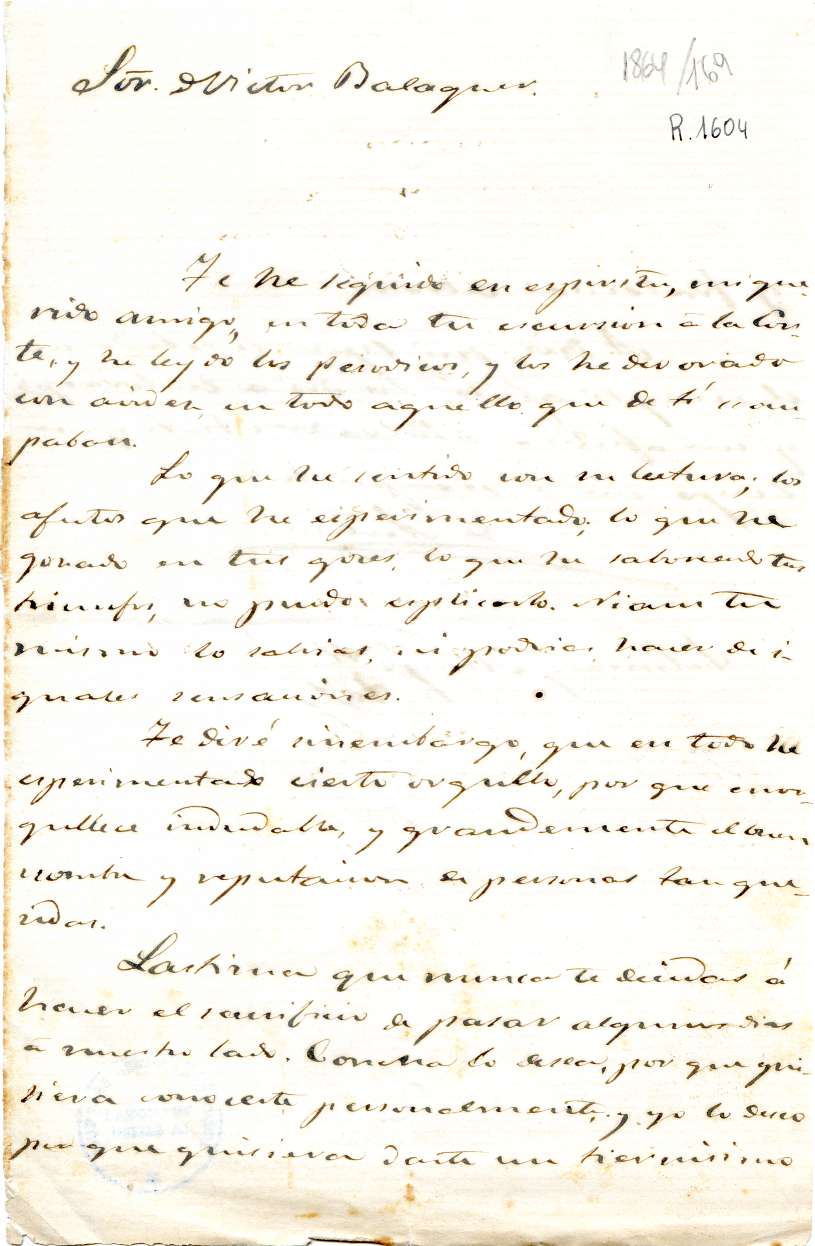 Sör. D Victor Balaguer.
1864/169
R. 1604
Te he seguido en espiritu, mi que-
rido amigo, en toda tu escursion á la Cor-
te, y he leydo los periodicos, y los he devorado
con avidez en todo aquello que de tí se ocu-
paban.
Lo que he sentido con su lectura; los
afectos que he esperimentado; lo que he
gozado en tus goces, lo que he saboreado tus
triunfos, no puedo esplicarlo. Ni aun tu
mismo lo sabrias, ni podrias hacer de i-
guales sensaciones.
Te diré sinembargo, que en todo he
esperimentado cierto orgullo, por que enor-
gullece indudable, y grandemente el buen
nombre y reputacion de personas tan que-
ridas.
Lastima que nunca te decidas á
hacer el sacrificio de pasar algunos dias
á nuestro lado. lo desea, por que qui-
siera conocerte personalmente, y yo lo deseo
por que quisiera darte un tiernisimo